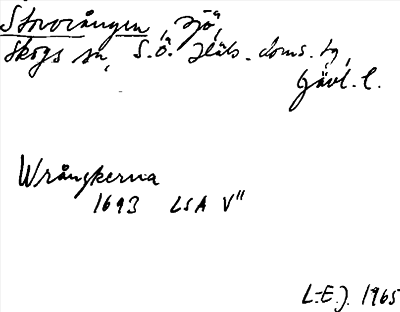 Storvrången, sjö,
Skogs sn, S.Ö. Häls. doms. tg,
Gävl. l.
Wrångkerna
1693 LSA V"
L-E.J. 1965